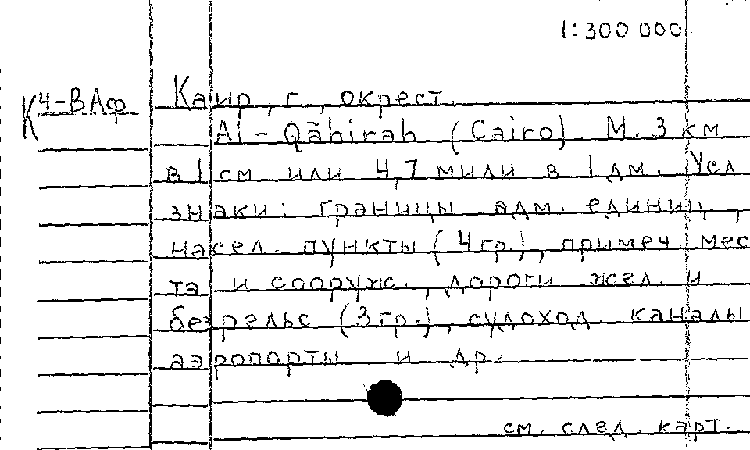 1:300 000
К4-ВАф Каир, г., окрест.
Al-Qāhirah (Cairo). М. 3 км
в 1 см или 4,7 мили в 1 дм. Усл.
знаки: границы адм. единиц,
насел. пункты (4 гр.), примеч. мес
та и сооруж., дороги жел. и
безрельс (3 гр.), судоход. каналы
аэропорты и др.
см. след. карт.